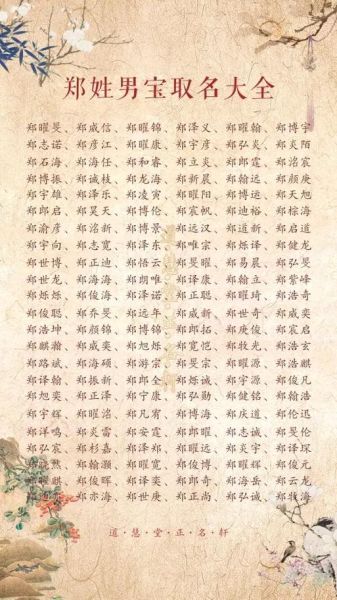 郑姓男宝取名大全
郑曜旻、郑威信、郑曜锦、郑泽义、郑曜翰、郑博宇
郑志诺、郑彦江、郑曜康、郑宇彦、郑弘炎、郑炎陌
郑石海、郑海任、郑和睿、郑立炎、郑郎霆、郑洺宸
郑博振、郑诚枝、郑龙海、郑新晨、郑翰远、郑颜庚
郑宇雄、郑泽乐、郑凌寓、郑曜阳、郑博运、郑天旭
郑郎启、郑昊天、郑博伦、郑宸帆、郑迪裕、郑棕海
郑渝彦、郑洺新、郑博景、郑远汉、郑道新、郑启道
郑宇向、郑志宽、郑泽东、郑唯宗、郑烁译、郑健龙
郑世博、郑正迪、郑悟云、郑旻曜、郑易晨、郑弘旻
郑世龙、郑海海、郑朗唯、郑译康、郑翰立、郑紫峰
郑烁烁、郑俊海、郑泽诺、郑正聪、郑曜琦、郑浩奇
郑俊聪、郑乔旻、郑远年、郑威新、郑世奇、郑威奕
郑浩坤、郑颜锦、郑博锦、郑郎拓、郑庚俊、郑宸启
郑麒瀚、郑威奕、郑旭烁、郑宽恺、郑牧光、郑浩玄
郑路斌、郑海硕、郑游宗、郑旻宗、郑曜源、郑浩麒
郑译翰、郑振新、郑郎全、郑烁诚、郑宇源、郑俊凡
郑旭奕、郑正泽、郑宁康、郑弘勋、郑健铭、郑翰浩
郑宇辉、郑曜洺、郑凡宥、郑博海、郑庆道、郑伦迅
郑洋鸣、郑炎雷、郑安霆、郑郎曜、郑志诚、郑旻伦
郑弘宸、郑杉嘉、郑泽郑、郑曜远、郑炎宇、郑译琛
郑晓然、郑翰灏、郑曜宽、郑俊博、郑曜辉、郑俊元
郑曜麒、郑俊晖、郑译奕、郑郎奇、郑海岳、郑云龙
郑俊海、郑亦海、郑世庚、郑正尚、郑弘诚、郑牧海
道·慧·堂·正·名·轩